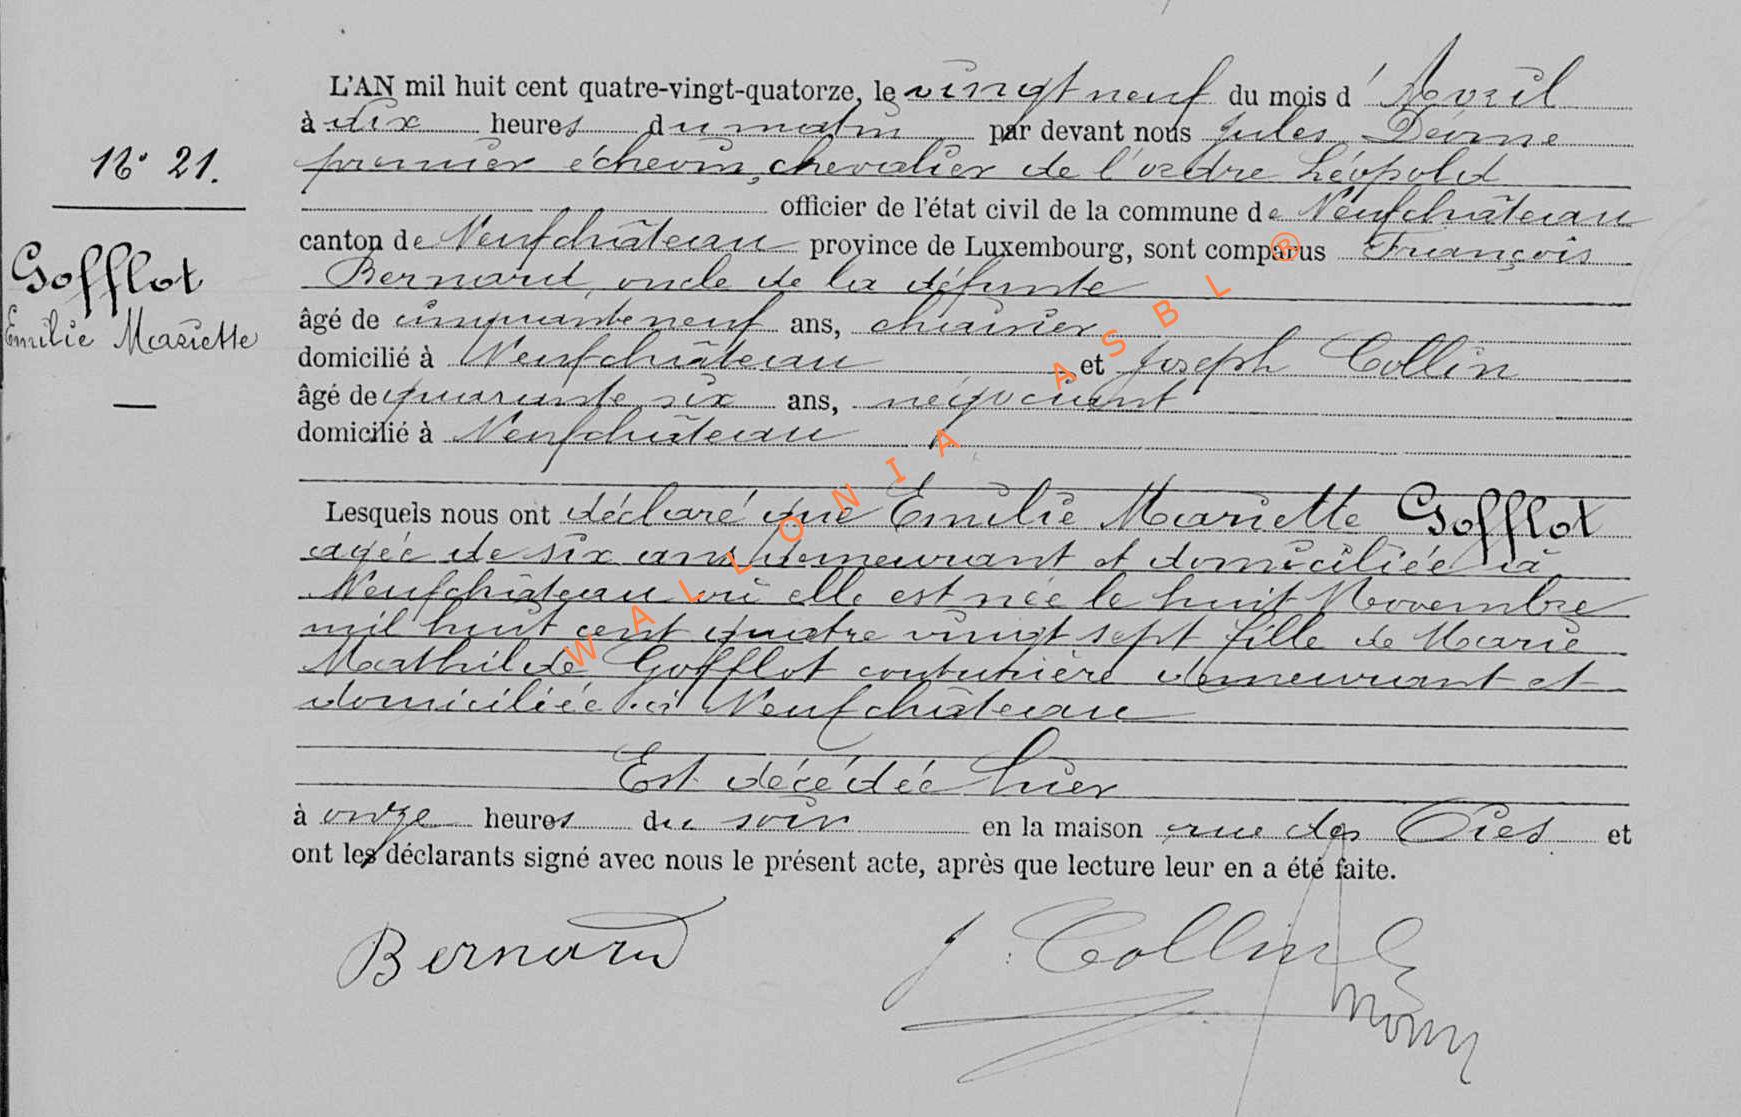 L'AN mil huit cent quatre-vingt-quatorze, le vingt neuf du mois d'Avril
à dix heures du matin par devant nous Jules
N° 21. premier échevin, chevalier de l'ordre Léopold
officier de l'état civil de la commune de Neufchâteau
Gofflot canton de Neufchâteau province de Luxembourg, sont comparus François
Bernard, oncle de la défunte
Emilie Mariette âgé de cinquante neuf ans,
domicilié à Neufchâteau et Joseph Collin
âgé de quarante six ans, négociant
domicilié à Neufchâteau
Lesquels nous ont déclaré que Emilie Mariette Gofflot
agée de six ans demeurant et domiciliée à
Neufchâteau où elle est née le huit Novembre
mil huit cent quatre vingt sept fille de Marie
Mathilde Gofflot couturière demeurant et
domiciliée à Neufchâteau
Est décédée hier
à onze heures du soir en la maison rue des et
ont les déclarants signé avec nous le présent acte, après que lecture leur en a été faite.
Bernard J. Collin
WALLONIA ASBL ®